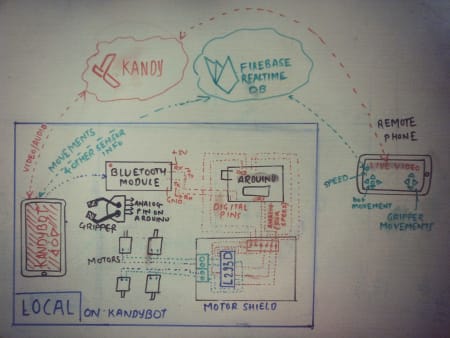 KANDY
FIREBASE
REALTIME
DB
REMOTE
PHONE
VIDEO/AUDIO
MOVEMENTS
& OTHER SENSOR
INFO
+5V
BLUETOOTH
MODULE
Rx
GND
ARDUINO
LIVE VIDEO
SPEED
BOT
MOVEMENT
GRIPPER
MOVEMENTS
KANDYBOT
APP
GRIPPER
ANALOG
PIN ON
ARDUINO
DIGITAL
PINS
ANALOG
(FOR
SPEED)
MOTORS
L293D
LOCAL
ON KANDYBOT
MOTOR SHIELD